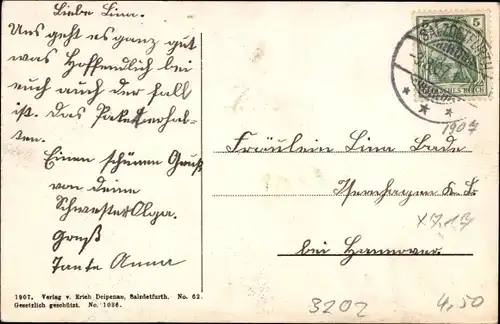 Liebe Lina.
Uns geht es ganz gut
was Hoffendlich bei
euch auch der fall
ist. Das Paket erhal-
ten.
Einen schönen Gruß
von deine
Schwester Olga.
Gruß
Tante Anna
5 5
DEUTSCHES REICH
1907
Fräulein Lina Bade
bei Hannover.
1907. Verlag v. Erich Deipenau, Salzdetfurth. No. 62.
Gesetzlich geschützt. No. 1086.
3202
4,50